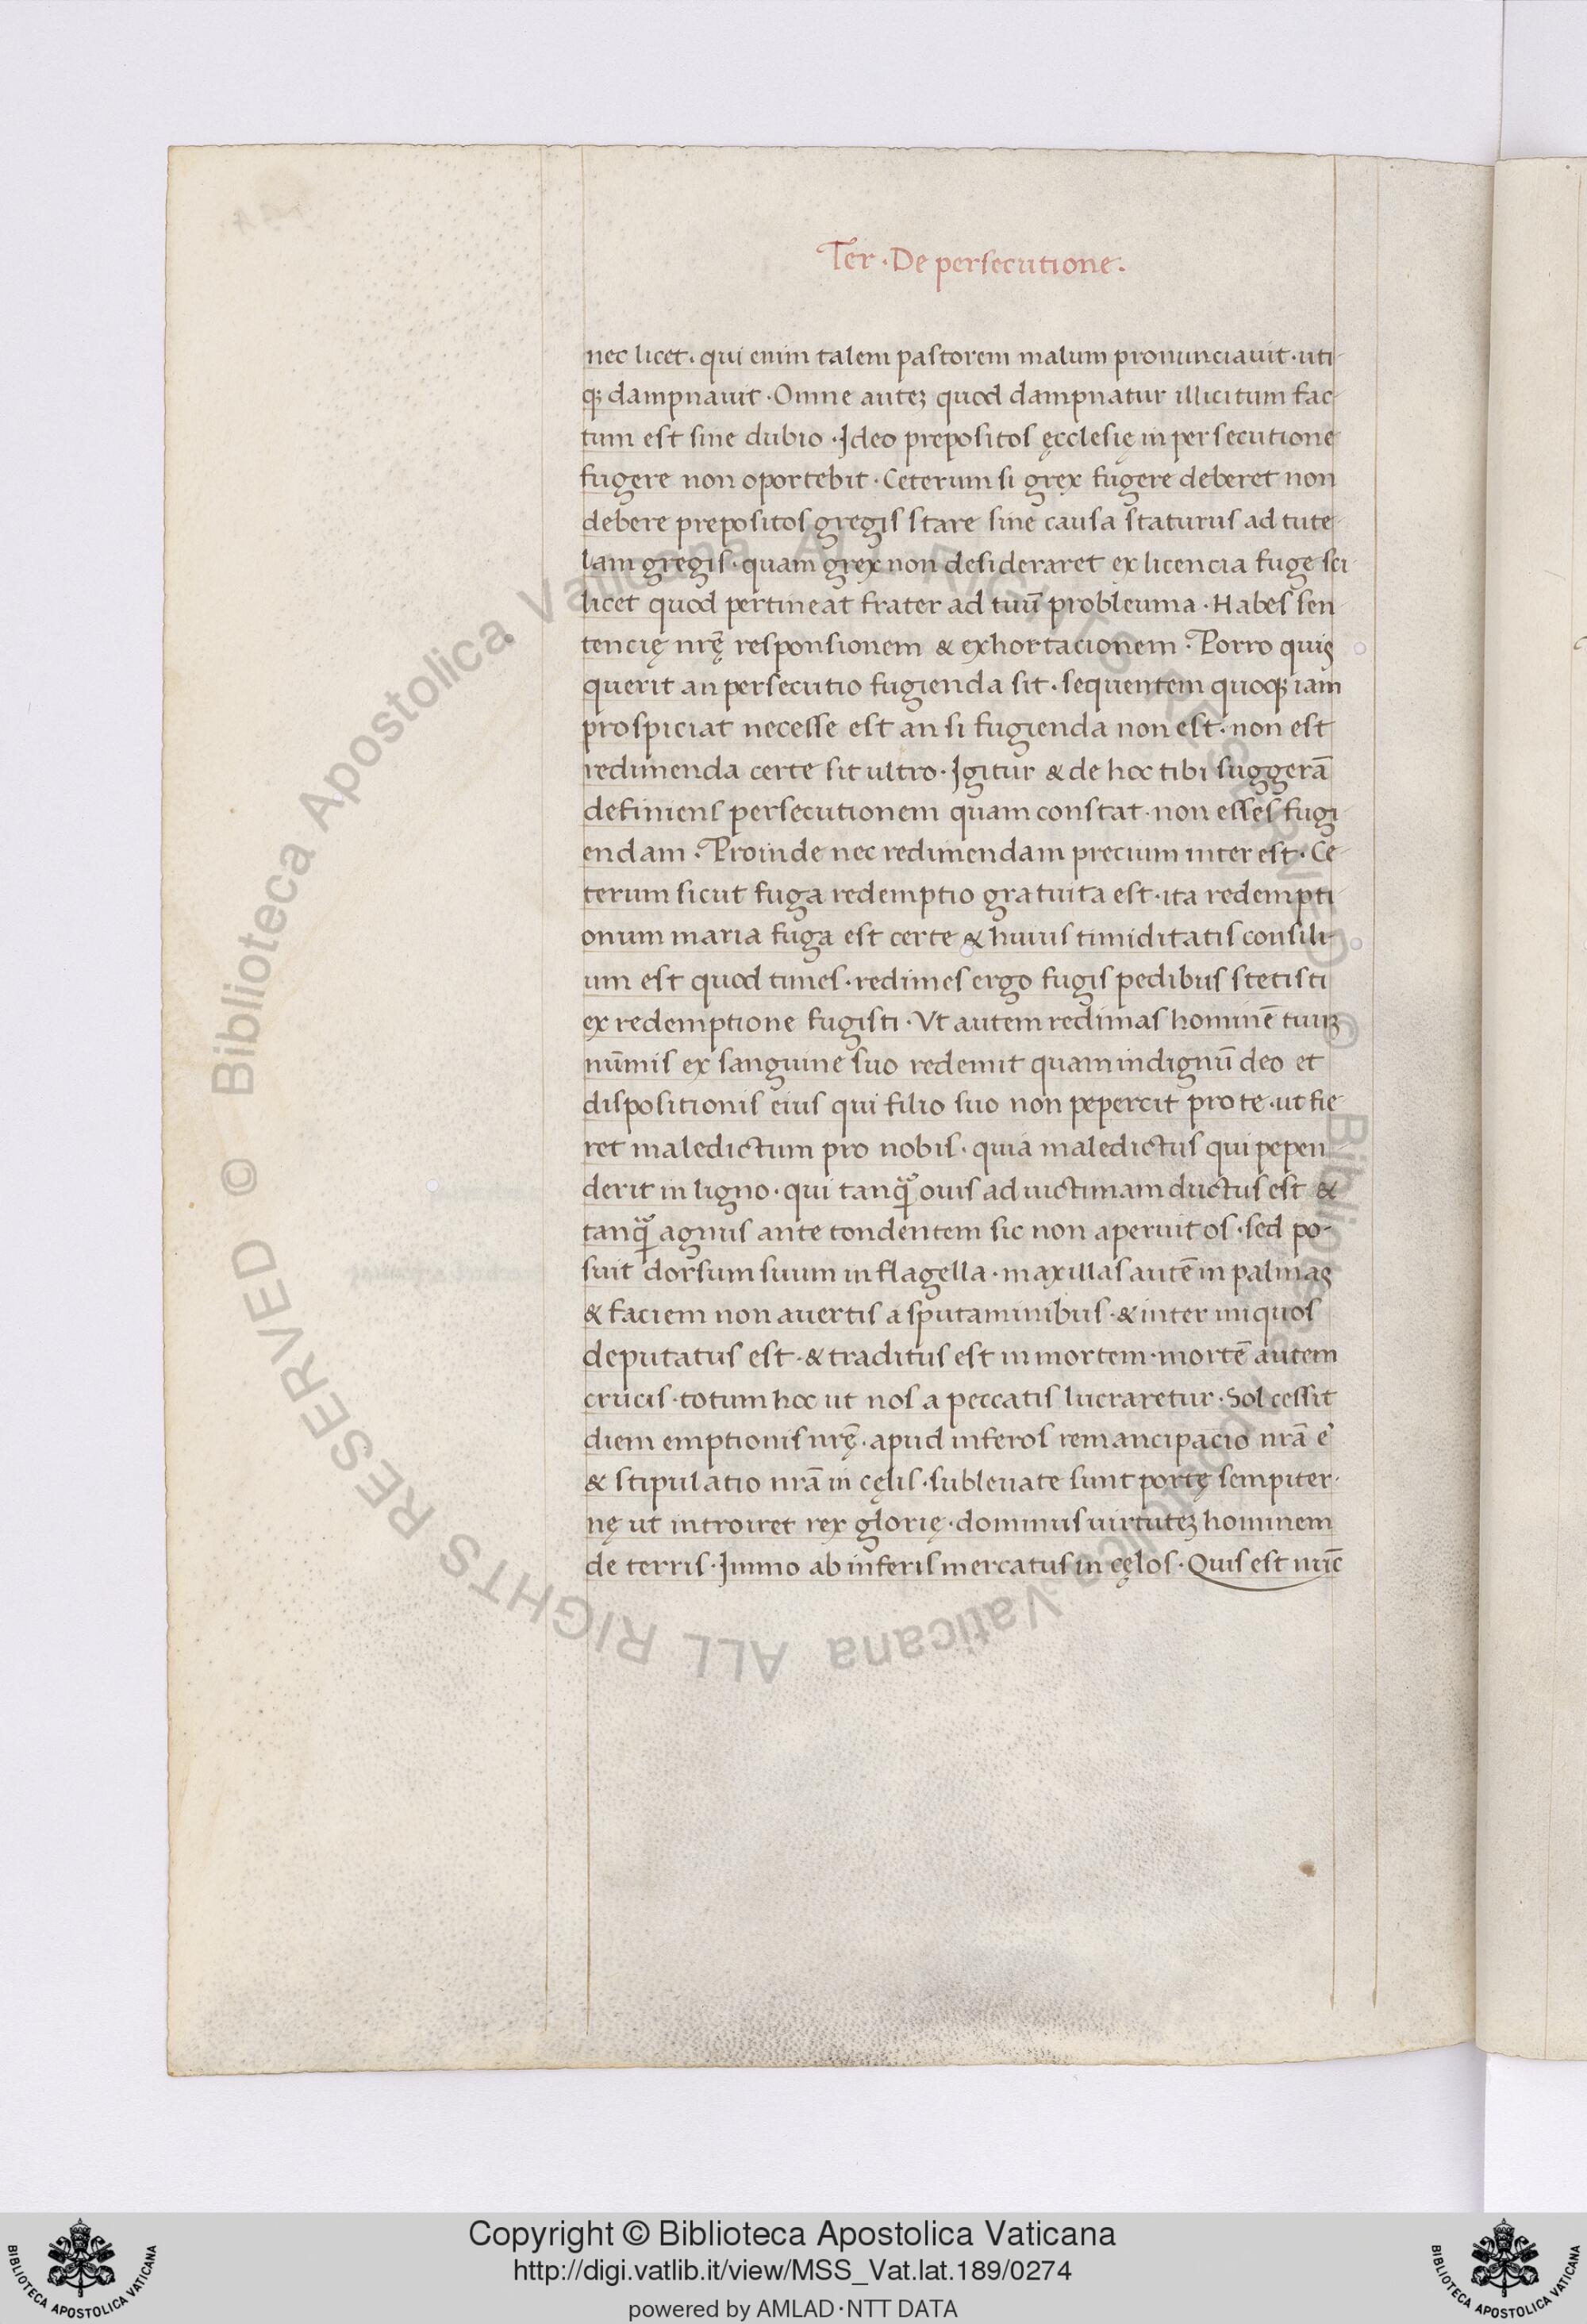 Ter · De persecutione ·
nec licet · qui enim talem pastorem malum pronunciauit · uti-
q; dampnauit · Omne autez quod dampnatur illicitum fac-
tum est sine dubio · Ideo prepositos ęcclesię in persecutione
fugere non oportebit · Ceterum si grex fugere deberet non
debere prepositos gregis stare sine causa staturus ad tute-
lam gregis · quam grex non desideraret ex licencia fuge sci-
licet quod pertineat frater ad tuū probleuma · Habes sen-
tencię nr̄ę responsionem & exhortacionem · Porro quis
querit an persecutio fugienda sit · sequentem quoq; iam
prospiciat necesse est an si fugienda non est · non est
redimenda certe sit ultro · Igitur & de hoc tibi suggerā
definiens persecutionem quam constat · non esses fugi-
endam · Proinde nec redimendam precium inter est · Ce-
terum sicut fuga redemptio gratuita est · ita redempti
onum maria fuga est certe & huius timiditatis consili-
um est quod times · redimes ergo fugis pedibus stetisti
ex redemptione fugisti · Vt autem redimas hominē tuuz
nūmis ex sanguine suo redemit quam indignū deo et
dispositionis eius qui filio suo non pepercit pro te · ut fie-
ret maledictum pro nobis · quia maledictus qui pepen
derit in ligno · qui tanꝙ̄ ouis ad uictimam ductus est &
tanꝙ̄ agnus ante tondentem sic non aperuit os · sed po-
suit dorsum suum in flagella · maxillas autē in palmas
& faciem non auertis a sputaminibus · & inter iniquos
deputatus est · & traditus est in mortem · mortē autem
crucis · totum hoc ut nos a peccatis lucraretur · Sol cessit
diem emptionis nr̄ę · apud inferos remancipacio nr̄a ē
& stipulatio nr̄a in cęlis · subleuate sunt portę sempiter-
nę ut introiret rex glorię · dominus uirtutez hominem
de terris · Immo ab inferis mercatus in cęlos · Quis est nūc
© Biblioteca Apostolica Vaticana ALL RIGHTS RESERVED © Biblioteca Apostolica Vaticana ALL RIGHTS RESERVED
BIBLIOTECA APOSTOLICA VATICANA
Copyright © Biblioteca Apostolica Vaticana
http://digi.vatlib.it/view/MSS_Vat.lat.189/0274
powered by AMLAD·NTT DATA
BIBLIOTECA APOSTOLICA VATICANA